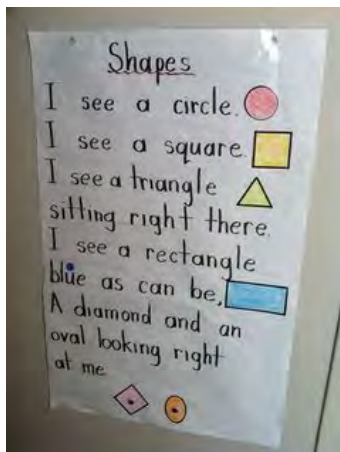 Shapes
I see a circle.
I see a square.
I see a triangle
sitting right there.
I see a rectangle
blue as can be,
A diamond and an
oval looking right
at me